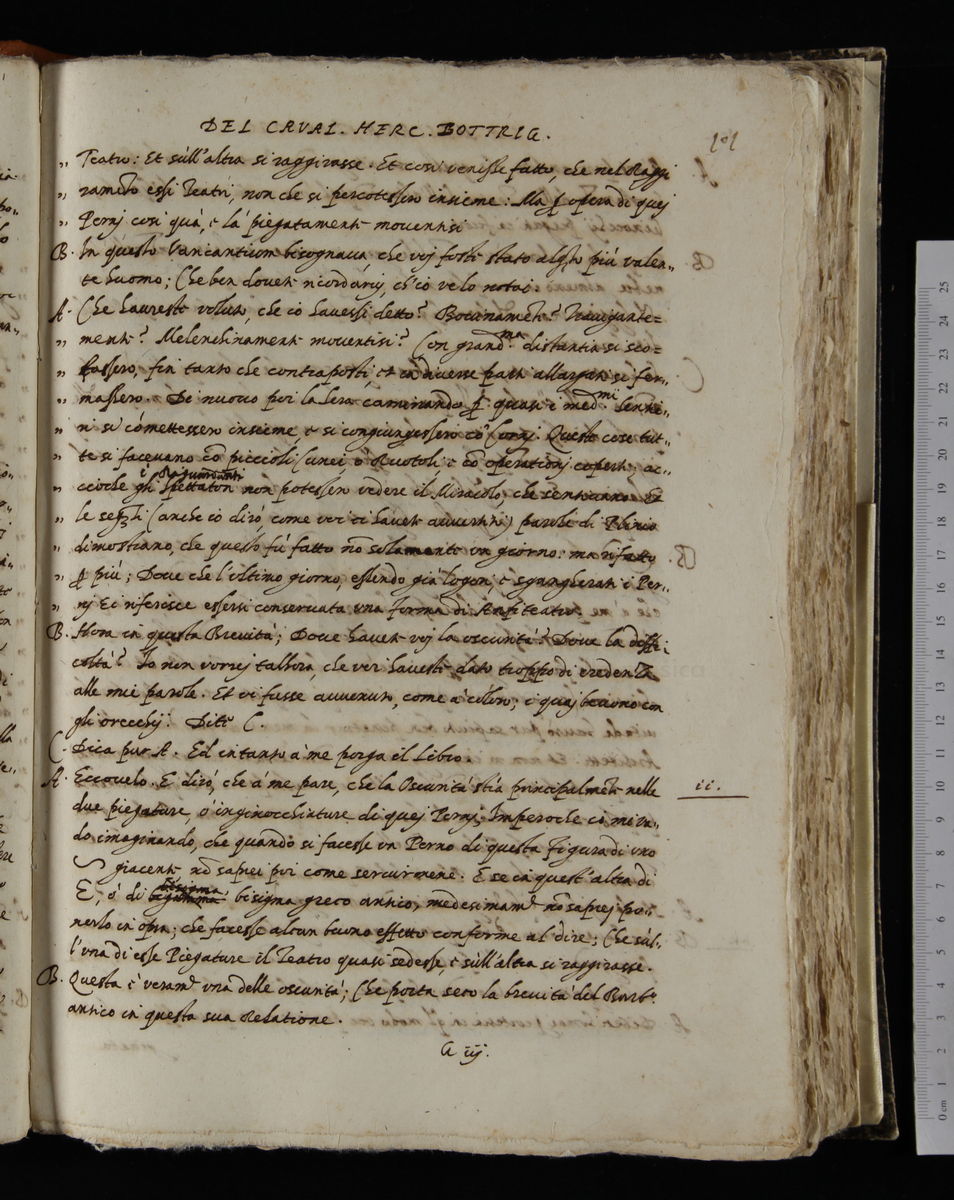 DEL CAVAL. HERC. BOTTRIG.
101
„ Teatro: Et sùll'altra si raggirasse. Et così venisse fatto, che nel Raggi
„ ramẽto essi Teatri, non che si percotessero insieme: Ma ꝑ opera di quej
„ Pernj così quà, e là piegatamente moventisi
B. In questo Varicantium bisognava che voj foste stato alq̃to più valen„
te huomo; Che ben dovete ricordarvj, ch'io ve lo notai.
A. Che haureste voluto, che io havessi detto? Travigante=
„ mente? Melenchinamente moventisi? Con grand.ma distantia si sco=
„ stassero, fin tanto che contraposti, et in diverse parti allargati si fer„
„ massero. Di nuovo poi la sera caminando ꝑ quasi i med.mi
„ ni si cõmettessero insieme, e si congiungessero cõ Cunej. Queste cose tut„
„ te si facevano cõ piccioli Cunei ò Ruotoli e cõ operationj coperte; ac„
„ ccioche gli Spettatori non potessero vedere il Miracolo, che
„ le (anche io dirò, come voi ci havete avvertiti) parole di Plinio
„ dimostrano, che questo fù fatto nõ solamente un giorno: ma rifatto
„ ꝑ più; Dove che l'ultimo giorno, essendo già logori, e sgangherati i Per„
„ nj Ei riferisce essersi conservata una forma di Anfiteatro.
B. Hora in questa Brevità; Dove havete voj la oscurità? Dove la diffi„
coltà? Io non vorrej tallhora, che voi haveste dato troppo di credenza
alle mie parole. Et vi fusse avvenuto, come à coloro; i quaj bevono con
gli orecchj. Dite C.
C. Dica pur A. Ed in tanto à me porga il Libro.
A. Eccovelo. E dirò, che à me pare, che la Oscurità stia principalmẽte nelle
ii.
due piegature, ò inginocchiature di quej Pernj; Imperoche io mi va„
do imaginando, che quando si facesse un Perno di questa figura di uno
S giacente, nõ saprei poi come servirmene. E se in quest'altra di
E, ò di bisigma bisigma greco antico, medesimamẽ nõ saprej por„
nerlo in opra; che facesse alcun buono effetto conforme al dire; Che sùl„
l'una di esse Piegature il Teatro quasi sedesse, e sùll'altra si raggirasse.
B. Questa è veramẽ una delle oscurità; Che porta seco la brevità del
antico in questa sua Relatione.
A iij.